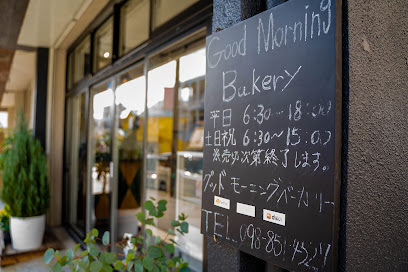 Good Morning
Bakery
平日 6:30-18:00
土日祝 6:30~15:00
完売次第終了します。
グッド モーニングベーカリー
TEL.098-85